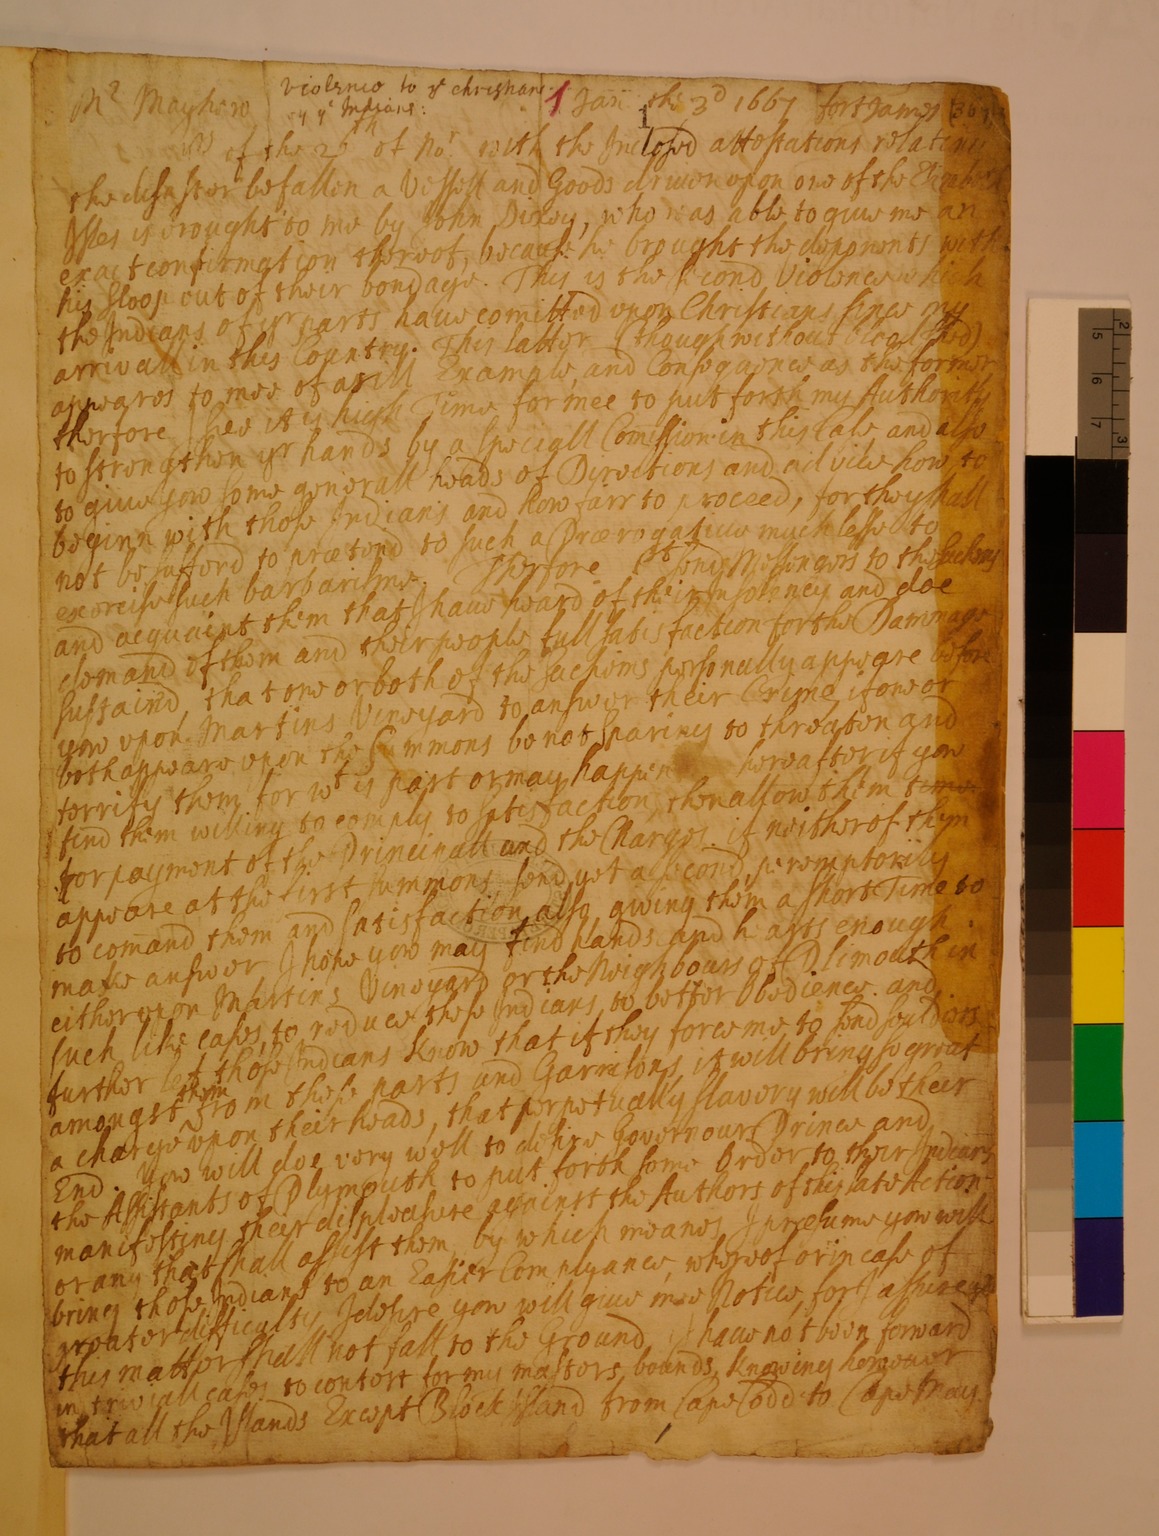 Violence to yᵉ christians
by yᵉ Indians:
Mʳ Mayhew 1 Jan the 3ᴰ 1667 fort James (36)
yʳˢ of the 29ᵗʰ of Noʳ. with the Inclosed attestations relating
the disaster befallen a Vessell and Goods driven upon one of the Elizabeth
Isles is brought to me by John Dixey, who was able to give me an
exact confirmation thereof, because he brought the deponents with
his sloop out of their bondage. This is the second Violence which
the Indians of yʳ parts have comitted upon Christians since my
arrivall in this Country. This latter (though without bloodshed)
appeares to mee of as ill Example, and Consequence as the former
therfore I see it is high Time for mee to put forth my Authority
to strengthen yʳ hands by a speciall Comission in this case, and also
to give yow some generall heads of Directions and advice how to
beginn with those Indians and how farr to proceed, for they shall
not be sufferd to prætend to such a Prærogative much lesse to
exercise such barbarisme. Therfore 1ˢᵗ send Messengers to the Sachems
and acquaint them that I have heard of their insolency and doe
demand of them and their people full satisfaction for the Dammage
sustaind, that one or both of the sachems personally appeare before
yow upon Martins Vineyard to answer their Crime, if one or
both appeare upon the summons be not sparing to threaten and
terrify them for wᵗ is past or may happen hereafter if yow
find them willing to comply to satisfaction, then allow them time
for payment of the Principall and the Charges. if neither of them
appeare at the first summons, send yet a second, peremptorily
to comand them and satisfaction also, giving them a short Time to
make answer, I hope yow may find hands and hearts enough
either upon Martins Vineyard or the Neighbours of Plimouth in
such like cases, to reduce these Indians to better obedience. and
further let those Indians know that if they force me to send souldiers
amongst them from these parts and Garrisons, it will bring so great
a charge upon their heads, that perpetually slavery will be their
End. Yow will doe very well to desire Governour Prince and
the Assistants of Plymouth to put forth some Order to their Indians
manifesting their displeasure against the Authors of this late Action
or any that shall assist them, by which meanes I presume yow will
bring those Indians to an Easier Complyance, whereof or in case of
greater difficulty I desire yow will give mee Notice, for I assure yᵘ
this matter shall not fall to the Ground, I have not been forward
in triviall cases to contest for my masters bounds, knowing however
that all the Islands Except Block Island from Cape Codd to Cape May